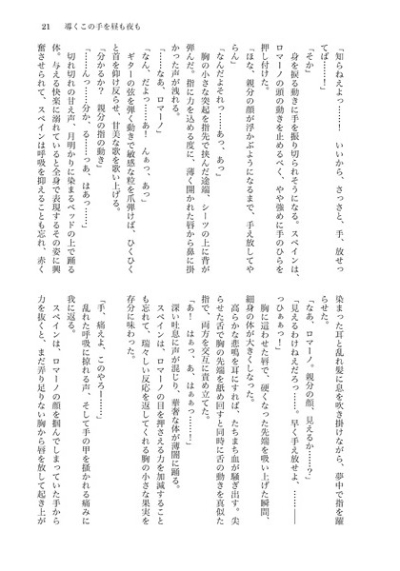 21　導くこの手を昼も夜も
「知らねえよ……！　いいから、さっさと、手、放せっ
てば……！」
「そか」
　身を捩る動きに手を振り切られそうになる。スペインは、
ロマーノの動きを止めるべく、やや強めに手のひらを
押し付けた。
「ほな、親分の顔が浮かぶようになるまで、手え放してや
らん」
「なんだよそれっ……あっ、あっ」
　胸の小さな突起を指先で挟んだ途端、シーツの上に背が
弾んだ。指に力を込める度に、薄く開かれた唇から鼻に掛
かった声が洩れる。
「……なあ、ロマーノ」
「なん、だよっ……あ！　んぁっ、あっ」
　ギターの弦を弾く動きで粒を爪弾けば、ひくひく
と首を仰け反らせ、甘美な歌を歌い上げる。
「分かるか？　親分の指の動き」
「……んっ……分か、る……っあ、はあっ……！」
　切れ切れの甘え声、月明かりに染まるベッドの上で踊る
体。与える快楽に溺れていると全身で表現するその姿に興
奮させられて、スペインは呼吸を抑えることも忘れ、赤く
染まった耳と乱れ髪に息を吹き掛けながら、夢中で指を躍
らせた。
「なぁ、ロマーノ。親分の顔、見えるか……？」
「見えるわけねえだろっ……。早く手え放せよ、………
っひぁぁっ！」
　胸に這わせた唇で、硬くなった先端を吸い上げた瞬間、
細身の体が大きくしなった。
　高らかな悲鳴を耳にすれば、たちまち血が騒ぎ出す。尖
らせた舌で胸の先端を舐め回すと同時に舌の動きを真似た
指で、両方を交互に責め立てた。
「あ！　はぁっ、あ、はぁぁっ……！」
　深い吐息に声が混じり、華奢な体が薄闇に踊る。
　スペインは、ロマーノの目を押さえる力を加減すること
も忘れて、瑞々しい反応を返してくれる胸の小さな果実を
存分に味わった。
「手、痛えよ、このやろー……」
　乱れた呼吸に掠れる声、そして手の甲を掻かれる痛みに
我に返る。
　スペインは、ロマーノの顔を掴んでしまっていた手から
力を抜くと、まだ弄り足りない胸から唇を放して起き上が